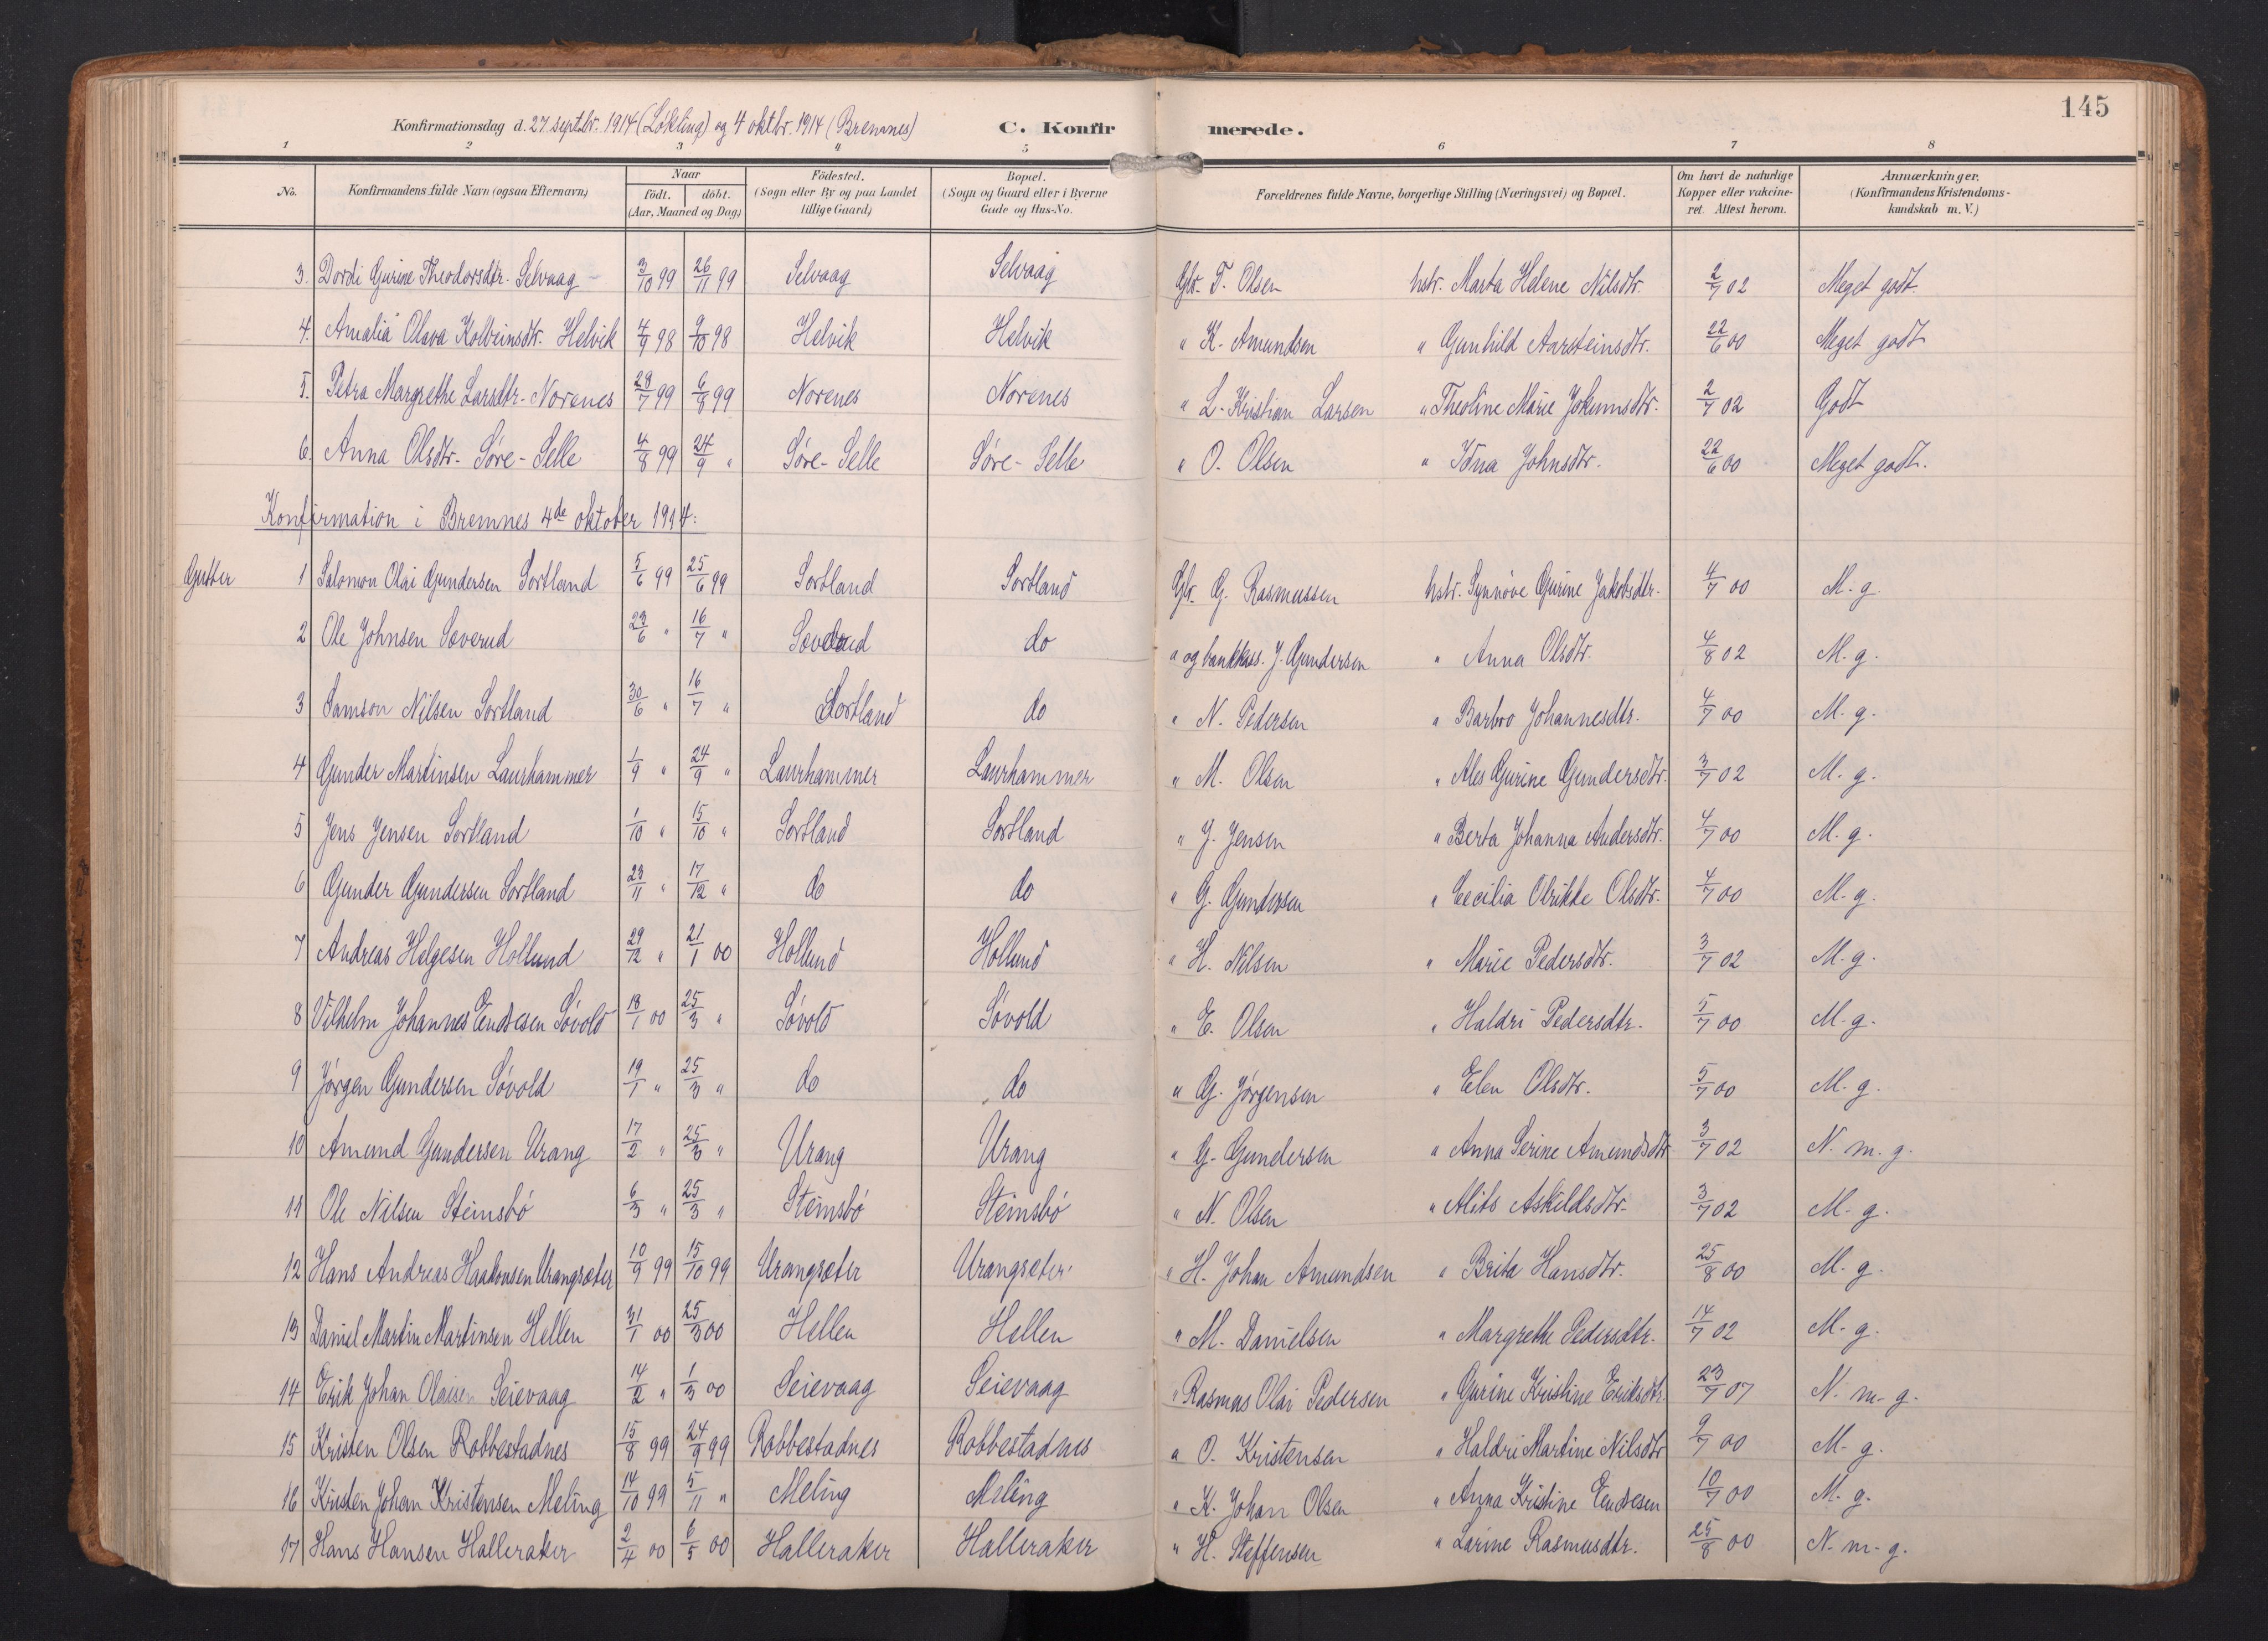 145
Konfirmationsdag d. 27 septbr. 1914 (Løkling) og 4 oktbr. 1914 (Bremnes) C. Konfirmerede.
1 2 3 4 5 6 7 8
No. Konfirmandens fulde Navn (ogsaa Efternavn) Naar født. døbt. (Aar, Maaned og Dag) Fødested. (Sogn eller By og paa Landet tillige Gaard) Bopæl. (Sogn og Gaard eller i Byerne Gade og Hus-No. Forældrenes fulde Navne, borgerlige Stilling (Næringsvei) og Bopæl. Om havt de naturlige Kopper eller vakcineret. Attest herom. Anmærkninger. (Konfirmandens Kristendomskundskab m. V.)
3. Dordi Gurine Theodorsdtr. Selvaag 3/10 99 26/11 99 Selvaag Selvaag Gbr. T. Olsen hstr. Marta Helene Nilsdtr. 2/7 02 Meget godt.
4. Amalia Olava Kolbeinsdtr. Helvik 4/9 98 9/10 98 Helvik Helvik " K. Amundsen " Gunhild Aarsteinsdtr. 22/6 00 Meget godt
5. Petra Margrethe Larsdtr. Norenes 28/7 99 6/8 99 Norenes Norenes " L. Kristian Larsen " Theoline Marie Jokumsdtr. 2/7 02 Godt
6. Anna Olsdtr. Søre-Selle 4/8 99 24/9 " Søre-Selle Søre-Selle " O. Olsen " Johnsdtr. 22/6 00 Meget godt.
Konfirmation i Bremnes 4de oktober 1914:
Gutter 1 Salomon Olai Gundersen Sortland 5/6 99 25/6 99 Sortland Sortland Gbr. G. Rasmussen hstr. Synnøve Gurine Jakobsdtr. 4/7 00 M. g.
2 Ole Johnsen Søverud 23/6 " 16/7 " do " og bankkass. J. Gundersen " Anna Olsdtr. 4/8 02 M. g.
3 Samson Nilsen Sortland 30/6 " 16/7 " Sortland do " N. Pedersen " Barbro Johannesdtr. 4/7 00 M. g.
4 Gunder Martinsen Laurhammer 1/9 " 24/9 " Laurhammer Laurhammer " M. Olsen " Ales Gurine Gundersdtr. 3/7 02 M. g.
5 Jens Jensen Sortland 1/10 " 15/10 " Sortland Sortland " J. Jensen " Berta Johanna Andersdtr. 4/7 00 M. g.
6 Gunder Gundersen Sortland 23/11 " 17/12 " do do " G. Gundersen " Cecilia Olrikke Olsdtr. 4/7 00 M. g.
7 Andreas Helgesen Hollund 29/12 " 21/1 00 Hollund Hollund " H. Nilsen " Marie Pedersdtr. 3/7 02 M. g.
8 Vilhelm Johannes Endresen Søvold 18/1 00 25/3 " Søvold Søvold " E. Olsen " Haldri Pedersdtr. 5/7 00 M. g.
9 Jørgen Gundersen Søvold 19/1 " 25/3 " do do " G. Jørgensen " Elen Olsdtr. 5/7 00 M. g.
10 Amund Gundersen Urang 17/2 " 25/3 " Urang Urang " G. Gundersen " Anna Serine Amundsdtr 3/7 02 N. m. g.
11 Ole Nilsen Steinsbø 6/3 " 25/3 " Steinsbø Steinsbø " N. Olsen " Alits Askildsdtr. 3/7 02 M. g.
12 Hans Andreas Haakonsen Urangsæter 10/9 99 15/10 99 Urangsæter Urangsæter " H. Johan Amundsen " Brita Hansdtr. 25/8 00 M. g.
13 Daniel Martin Martinsen Hellen 31/1 00 25/3 00 Hellen Hellen " M. Danielsen " Margrethe Pedersdtr. 14/7 02 M. g.
14 Erik Johan Olaisen Seievaag 14/2 " 1/3 00 Seievaag Seievaag " Rasmus Olai Pedersen " Gurine Kristine Eriksdtr. 23/7 07 N. m. g.
15 Kristen Olsen Robbestadnes 15/8 99 24/9 99 Robbestadnes Robbestadnes " O. Kristensen " Haldri Martine Nilsdtr 9/7 00 M. g.
16 Kristen Johan Kristensen Meling 14/10 99 5/11 " Meling Meling " K. Johan Olsen " Anna Kristine Endresen 10/7 00 M. g.
17 Hans Hansen Halleraker 2/4 00 6/5 00 Halleraker Halleraker " H. Steffensen " Larine Rasmusdtr. 25/8 00 N. m. g.